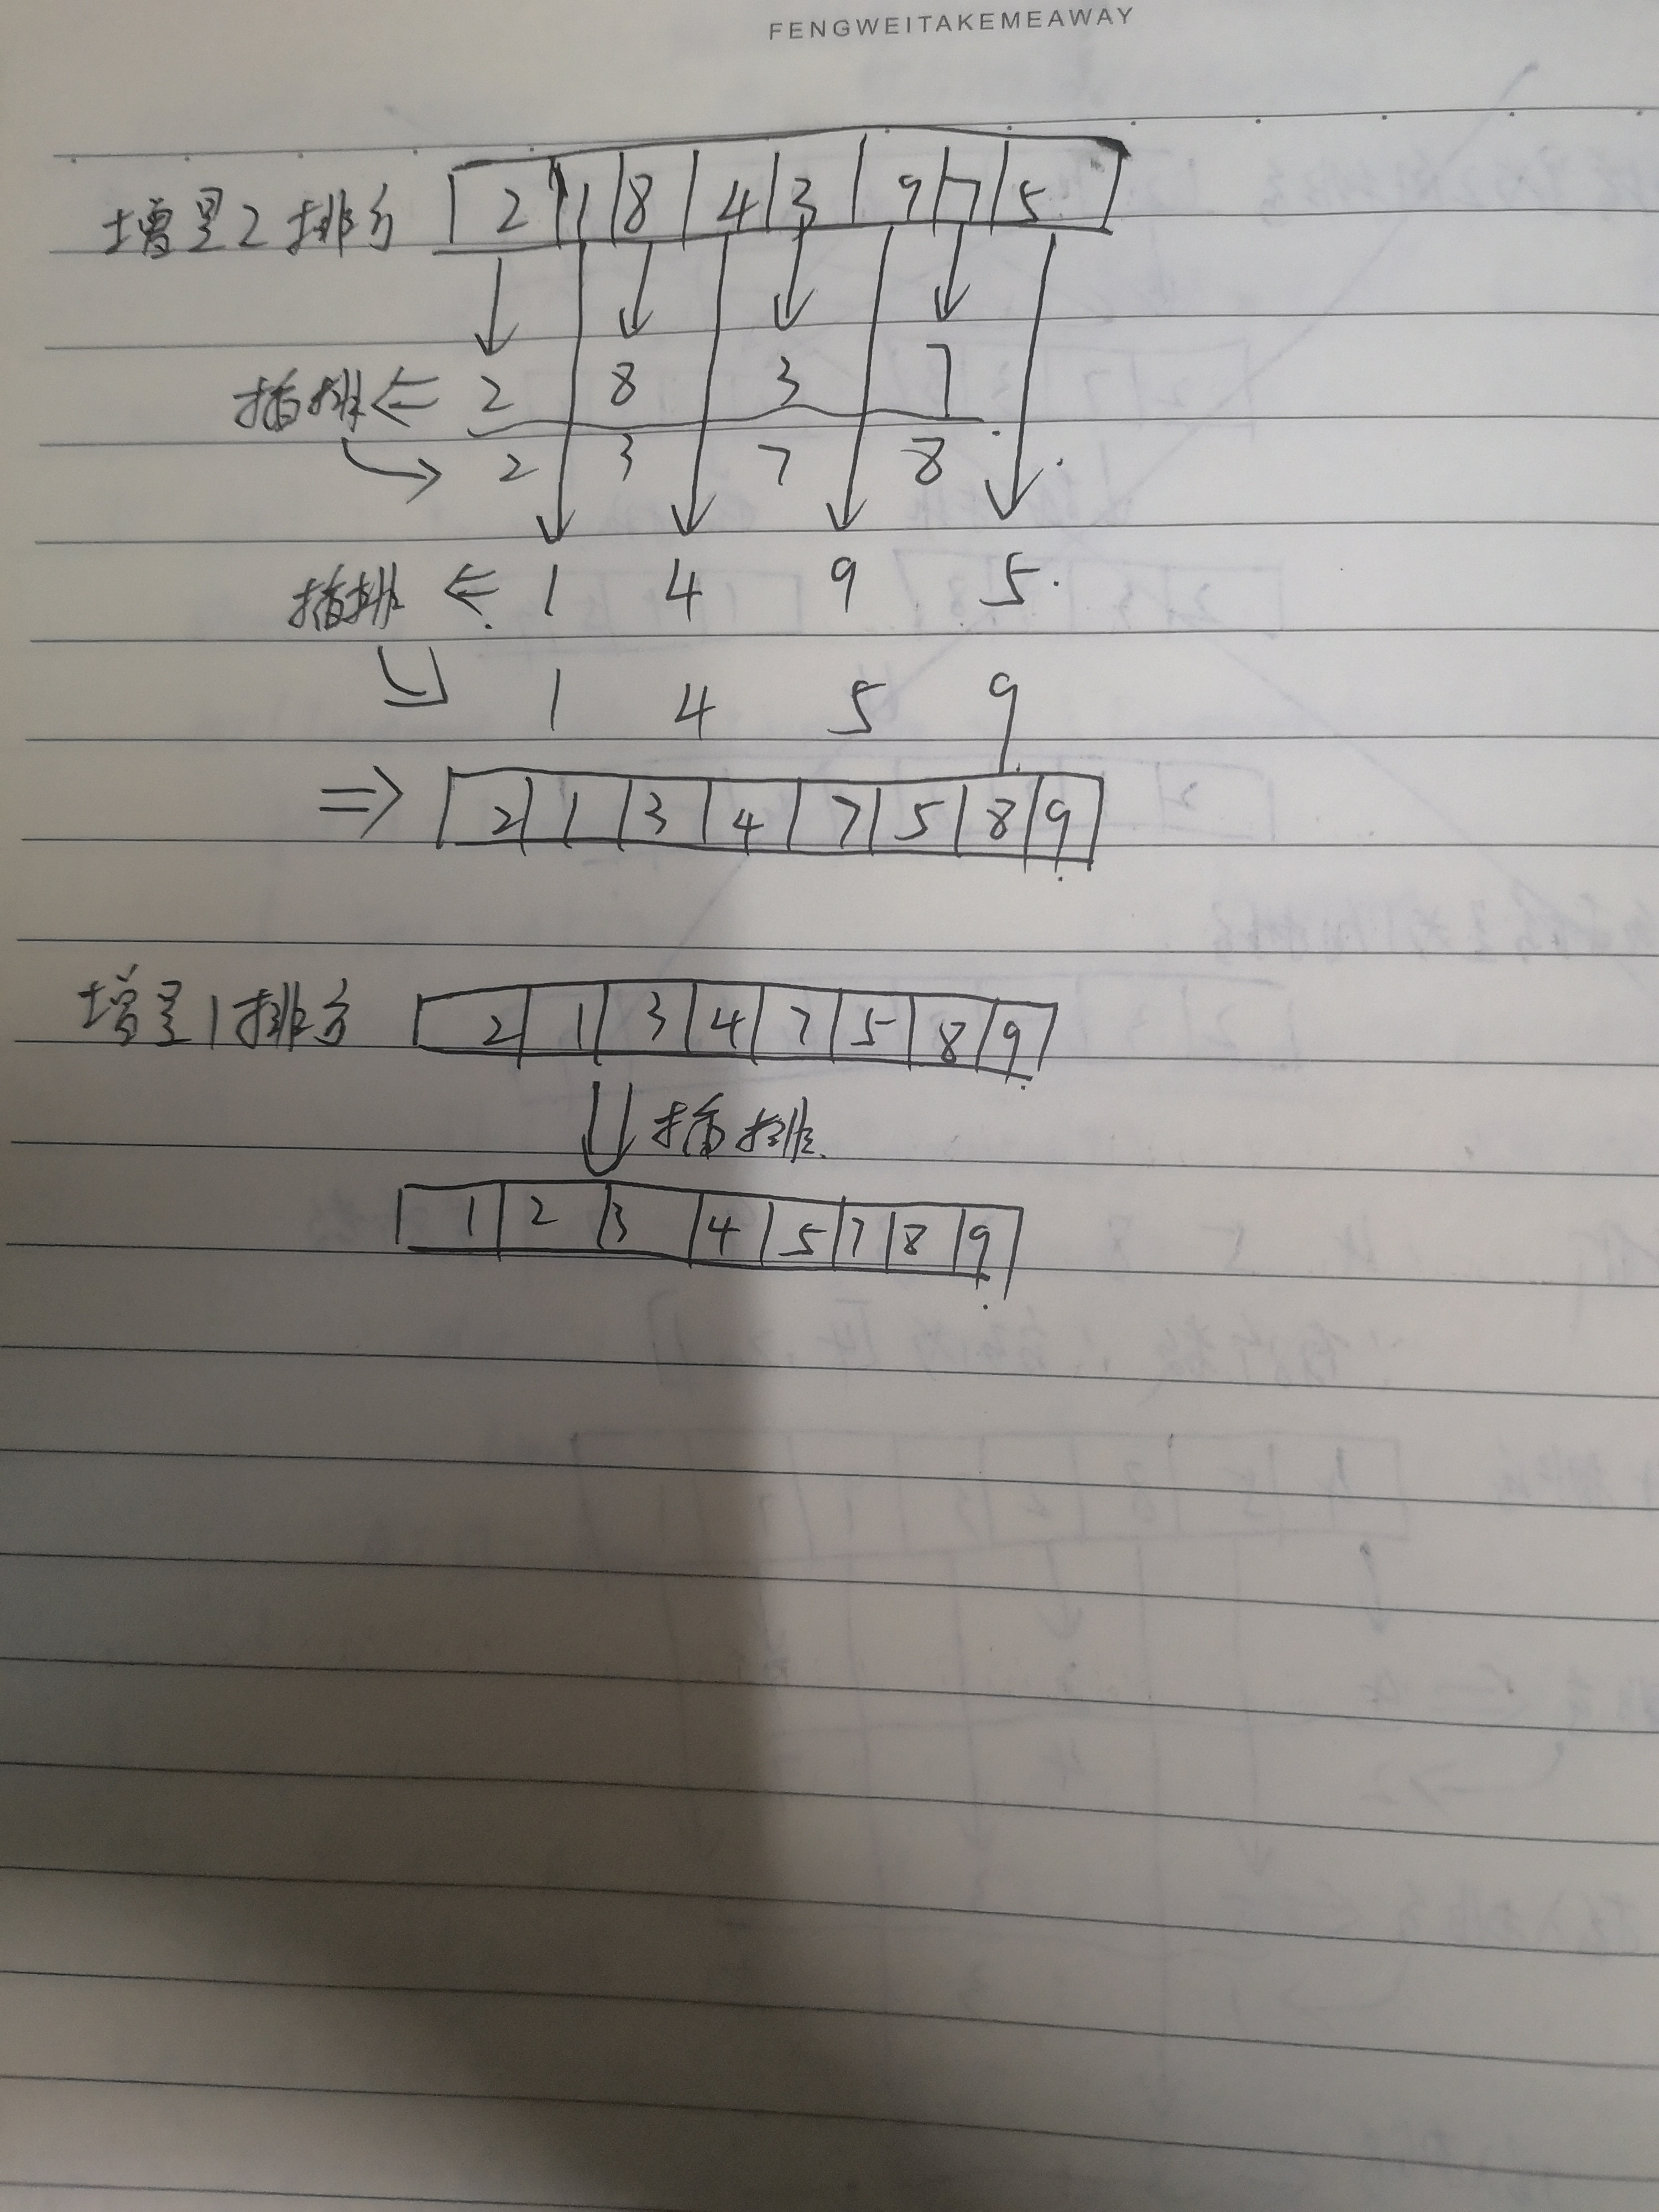 FENGWEITAKEMEAWAY
增量2排序 2 1 8 4 3 9 7 5
插排 ⇐ 2 8 3 7
2 3 7 8
插排 ⇐ 1 4 9 5
1 4 5 9
⇒ 2 1 3 4 7 5 8 9
增量1排序 2 1 3 4 7 5 8 9
插排
1 2 3 4 5 7 8 9